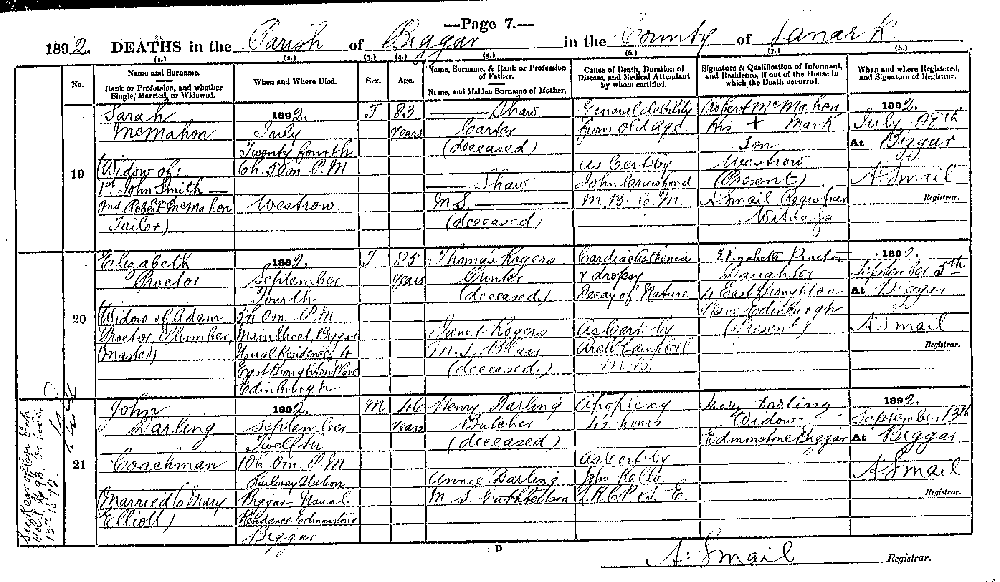 —Page 7.—
1892. DEATHS in the Parish of Biggar in the County of Lanark
(1.) (2.) (3.) (4.) (5.) (6.) (7.) (8.)
No.
Name and Surname.
Rank or Profession, and whether Single, Married, or Widowed.
When and Where Died.
Sex.
Age.
Name, Surname, & Rank or Profession of Father.
Name, and Maiden Surname of Mother.
Cause of Death, Duration of Disease, and Medical Attendant by whom certified.
Signature & Qualification of Informant, and Residence, if out of the House in which the Death occurred.
When and where Registered, and Signature of Registrar.
19
Sarah
McMahon
Widow of:
1st John Smith —
2nd Robert McMahon
Tailor)
1892.
July
Twenty fourth
Oh. 50m. P.M.
Westrow
F
83
years
— Shaw
Carter
(deceased)
— Shaw
M.S. —
(deceased)
General debility
from old age
As Cert by
John Crawford
M.B. C.M.
Robert McMahon
His + Mark
Son
Westrow
(Present)
A. Smail Registrar
Witness
1892.
July 27th
At Biggar
A. Smail
Registrar.
20
Elizabeth
Proctor
Widow of Adam
Proctor Plumber
Master)
1892.
September
Fourth
Om. P.M.
Main Street Biggar
Usual Residence 4
East Broughton Place
Edinburgh
F
85
years
Thomas Rogers
(deceased)
Janet Rogers
M.S.
(deceased)
Cardiac Asthenia
& dropsy
Decay of Nature
As Cert by
Arch Campbell
M.B.
Elizabeth Proctor
Daughter
4 East Broughton
Place Edinburgh
(Present)
1892.
September 5th
At Biggar
A. Smail
Registrar.
21
John
Darling
Coachman
Married to Mary
Elliott)
1892.
September
Twelfth
10h. Om. P.M.
Railway Station
Biggar Usual
Residence Edmonstone
Biggar
M
46
years
Henry Darling
Butcher
(deceased)
Annie Darling
M.S.
Apoplexy
42 hours
As Cert by
John Kello
L.R.C.P. & S. E.
Mary Darling
Widow
Edmonstone Biggar
1892.
September 13th
At Biggar
A. Smail
Registrar.
D
A. Smail Registrar.